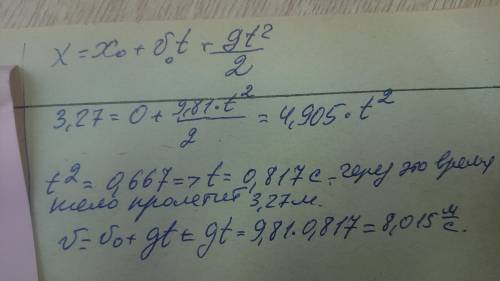 x = x₀ + v₀t + gt²/2
3,27 = 0 + 9,81·t²/2 = 4,905·t²
t² = 0,667 => t = 0,817 с - через это время
тело пролетит 3,27 м.
v = v₀ + gt = gt = 9,81·0,817 = 8,015 м/с.